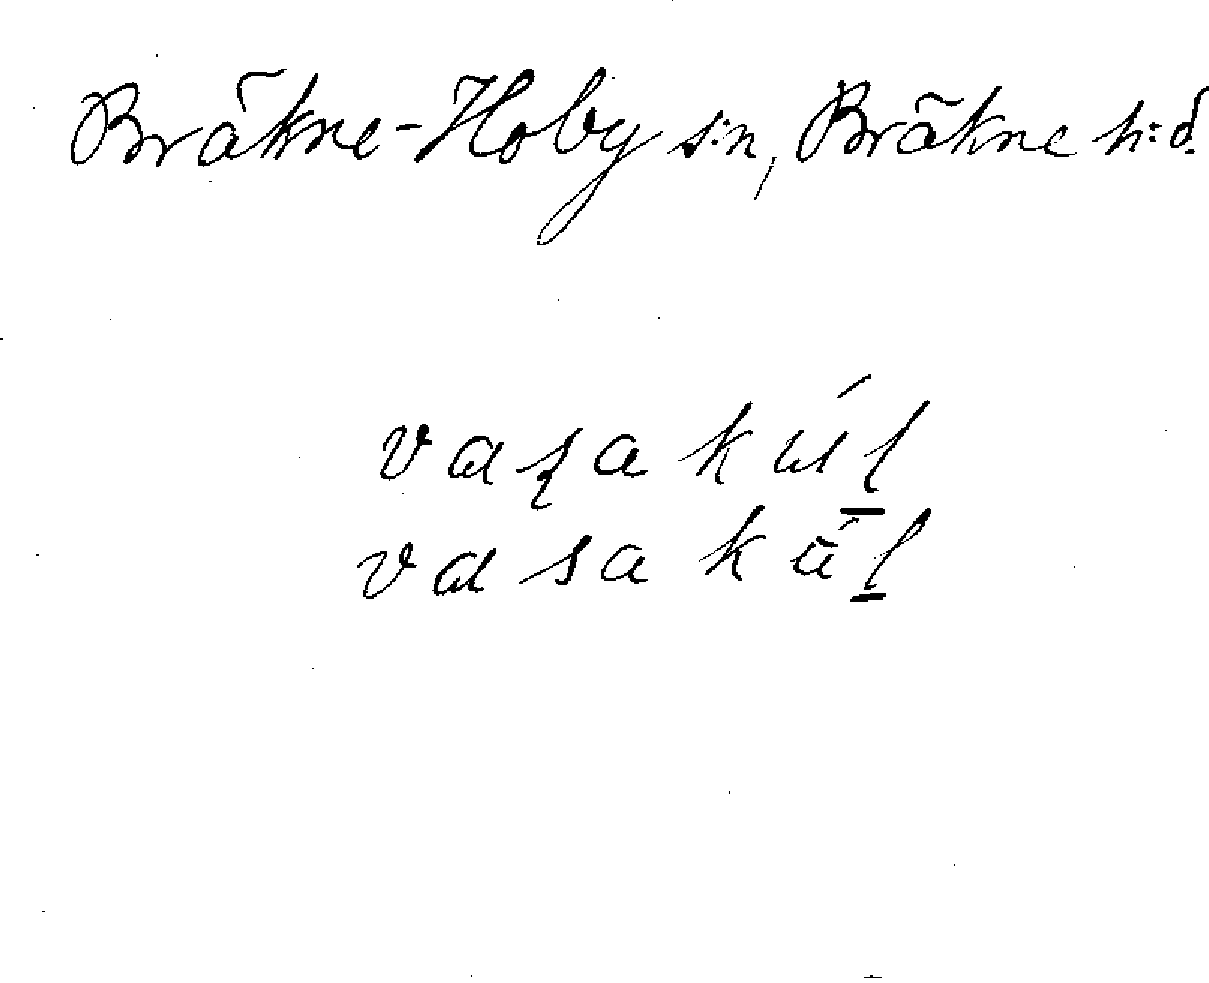 Bräkne-Hoby s:n, Bräkne h:d.
vaʂakúl
vasakúl